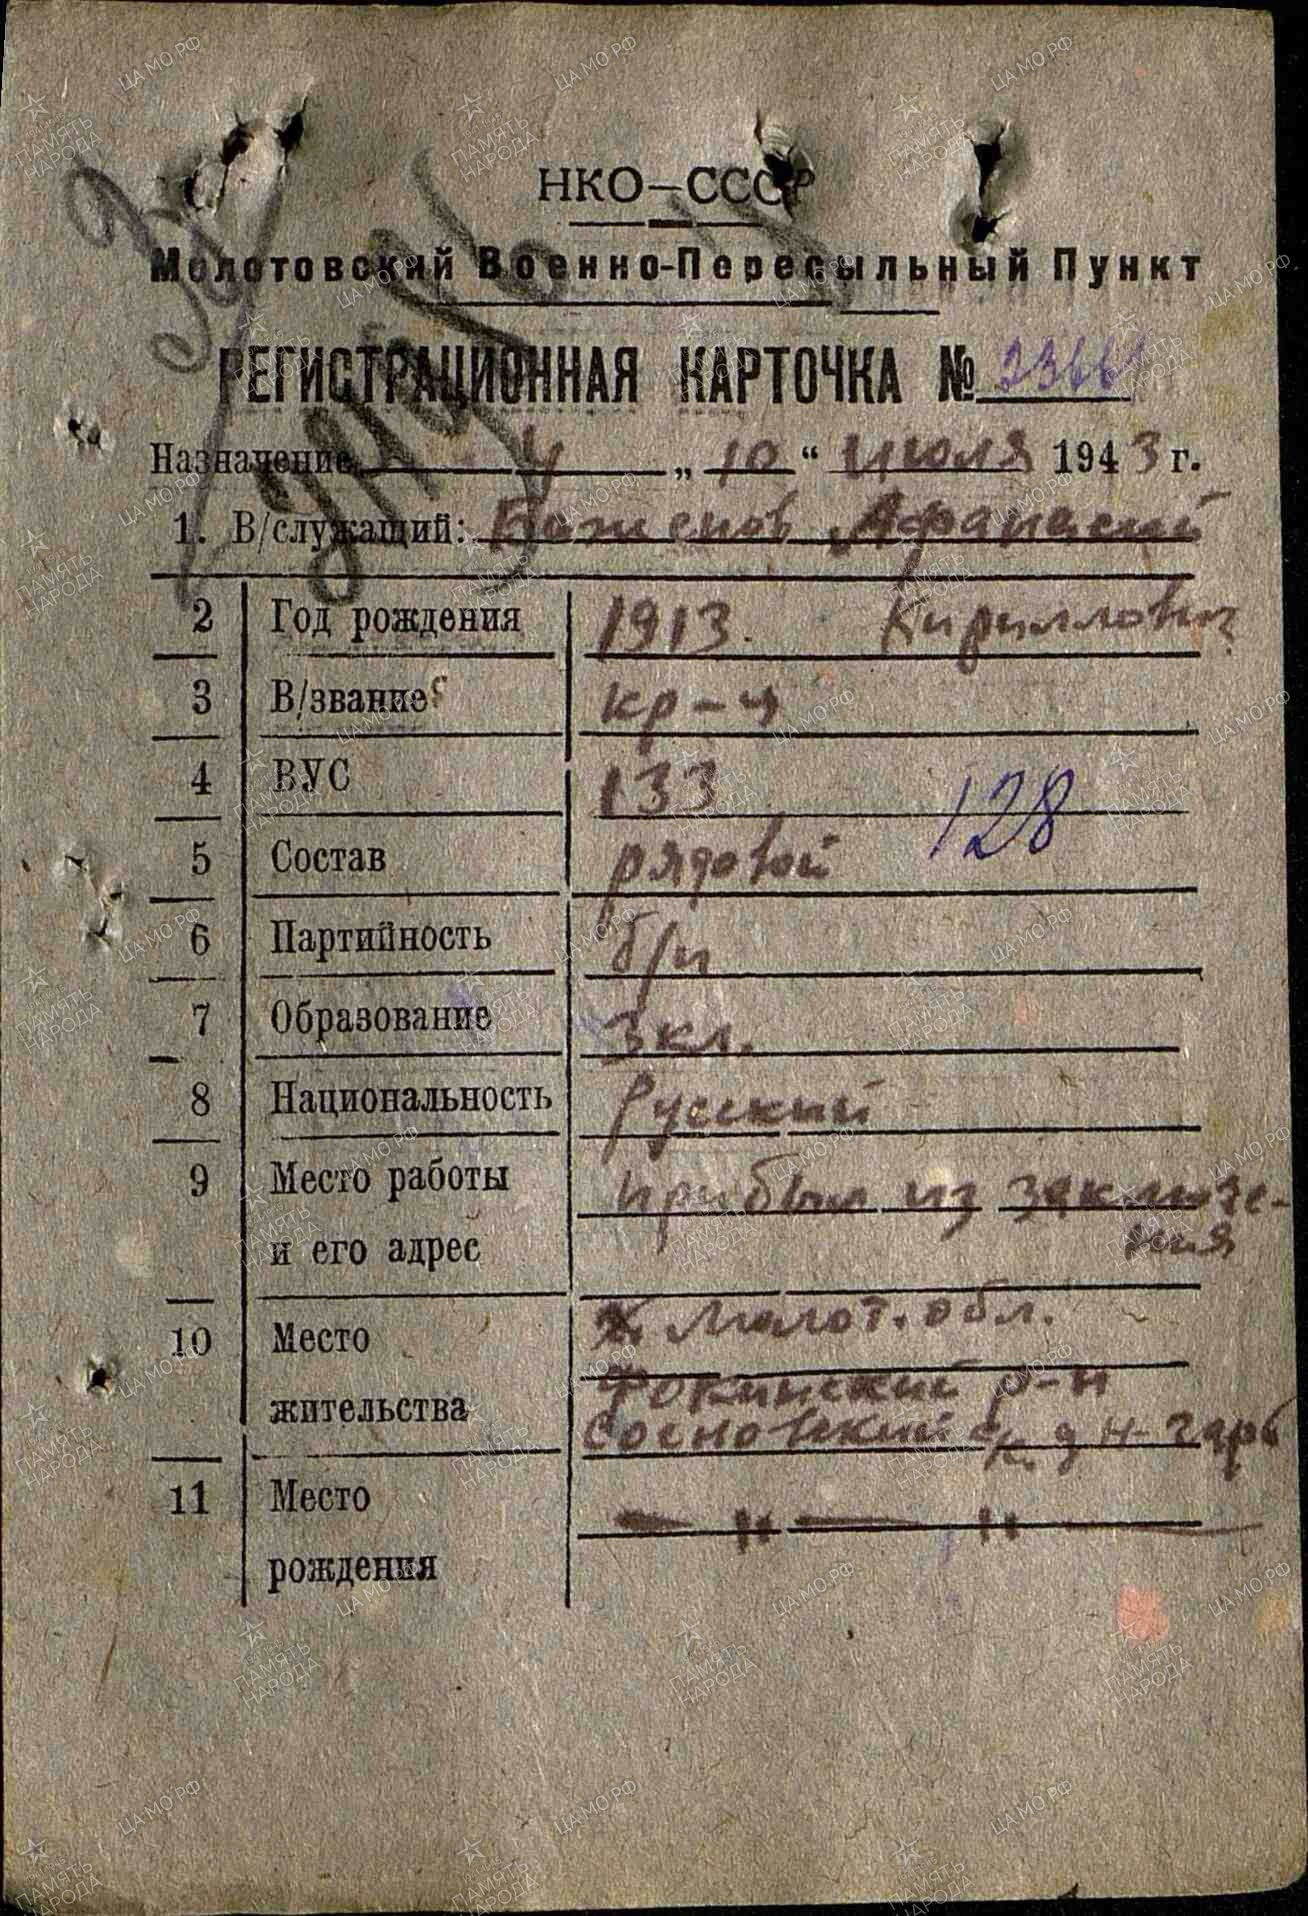 НКО—СССР
Молотовский Военно-Пересыльный Пункт
РЕГИСТРАЦИОННАЯ КАРТОЧКА №
Назначение 4 „ 10 “ Июля 1943 г.
1. В/служащий: Баженов Афанасий
Кириллович
2 Год рождения 1913.
3 В/звание кр-ц
4 ВУС 133
128
5 Состав рядовой
6 Партийность б/п
7 Образование 3 кл.
8 Национальность Русский
9 Место работы и его адрес прибыл из заключе-
ния
10 Место жительства Молот. обл.
Фокинский р-н
Сосновский с/с д
11 Место рождения — " — " —
ПАМЯТЬ НАРОДА
ЦА МО РФ